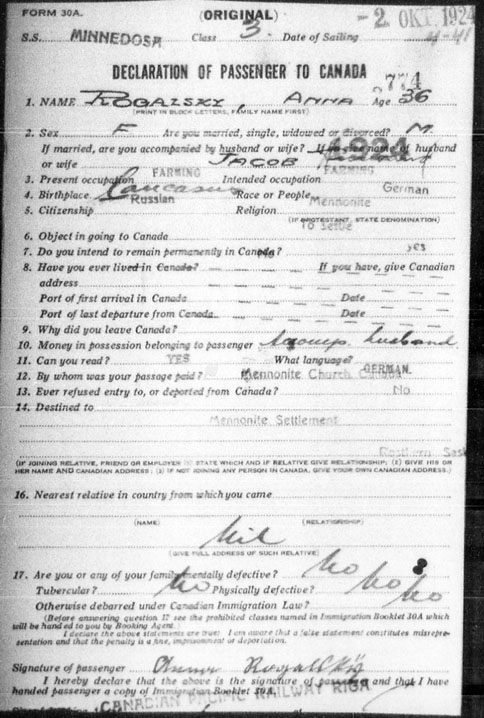 FORM 30A.
(ORIGINAL)
-2 OKT. 1924
S.S. MINNEDOSA Class 3. Date of Sailing 4-41
DECLARATION OF PASSENGER TO CANADA
1. NAME ROGALSKY, ANNA Age 36
(PRINT IN BLOCK LETTERS, FAMILY NAME FIRST)
2. Sex F Are you married, single, widowed or divorced? M.
If married, are you accompanied by husband or wife? If so, give name of husband
or wife JACOB
3. Present occupation FARMING Intended occupation FARMING
4. Birthplace Caucasus Race or People German
5. Citizenship Russian Religion Mennonite
(IF PROTESTANT, STATE DENOMINATION)
6. Object in going to Canada To settle
7. Do you intend to remain permanently in Canada? yes
8. Have you ever lived in Canada? If you have, give Canadian
address
Port of first arrival in Canada Date
Port of last departure from Canada Date
9. Why did you leave Canada?
10. Money in possession belonging to passenger accomp. husband
11. Can you read? YES What language? GERMAN.
12. By whom was your passage paid? Mennonite Church Canada
13. Ever refused entry to, or deported from Canada? No
14. Destined to
Mennonite Settlement
Rosthern Sask
(IF JOINING RELATIVE, FRIEND OR EMPLOYER (1) STATE WHICH AND IF RELATIVE GIVE RELATIONSHIP; (2) GIVE HIS OR
HER NAME AND CANADIAN ADDRESS; (3) IF NOT JOINING ANY PERSON IN CANADA, GIVE YOUR OWN CANADIAN ADDRESS)
16. Nearest relative in country from which you came
(NAME) (RELATIONSHIP)
Nil
(GIVE FULL ADDRESS OF SUCH RELATIVE)
17. Are you or any of your family mentally defective? No
Tubercular? No Physically defective? No
Otherwise debarred under Canadian Immigration Law? No
(Before answering question 17 see the prohibited classes named in Immigration Booklet 30A which
will be handed to you by Booking Agent.)
I declare the above statements are true: I am aware that a false statement constitutes misrepre-
sentation and that the penalty is a fine, imprisonment or deportation.
Signature of passenger Anna Rogalsky
I hereby declare that the above is the signature of passenger and that I have
handed passenger a copy of Immigration Booklet 30A.
CANADIAN PACIFIC RAILWAY RIGA